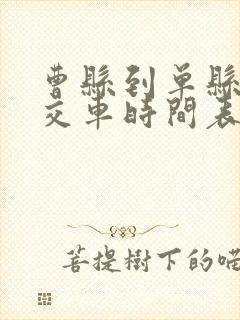 曹縣到單縣
交車時間表
菩提樹下的喵